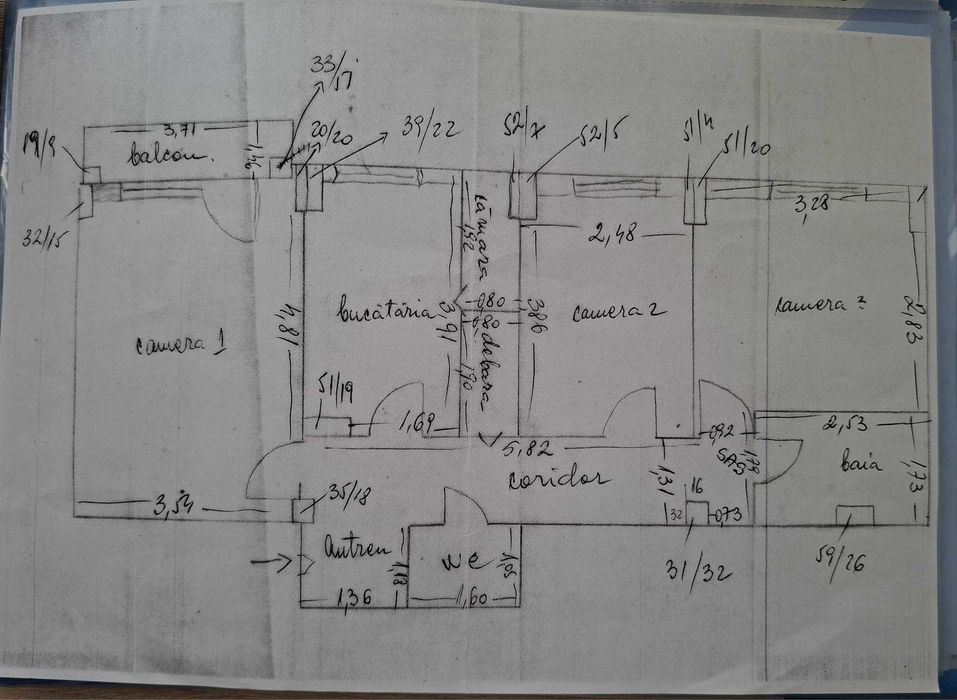 33/51
19/9
3,71
balcon.
1,46
20/20
39/22
52/7
52/5
51/4
51/20
32/15
3,28
cămara
1,92
2,48
0,80
4,81
bucătăria
3,91
0,80
3,86
camera 2
camera 3
2,83
camera 1
debara
1,90
51/19
1,69
0,92
2,53
5,82
SAS
1,79
baia
1,73
coridor
1,31
3,54
35/18
16
32
0,73
Antreu
1,18
WC
1,05
31/32
59/26
1,36
1,60